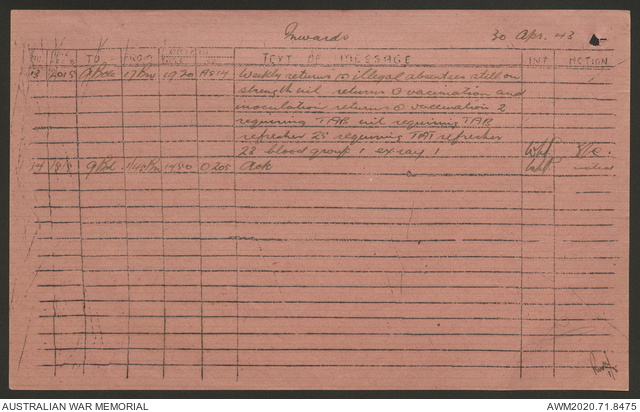 Inwards 30 Apr. 43
TO FROM TEXT OF MESSAGE INT. ACTION
13 2015 17 Bn 1920 A814 Weekly returns illegal absentees still on
strength nil returns O vaccination and
inoculation returns O vaccination 2
requiring TAB nil requiring TAB
refresher 25 requiring TAT refresher
23 blood group 1 exray 1
14 1450 0205 Ack
AUSTRALIAN WAR MEMORIAL AWM2020.71.8475